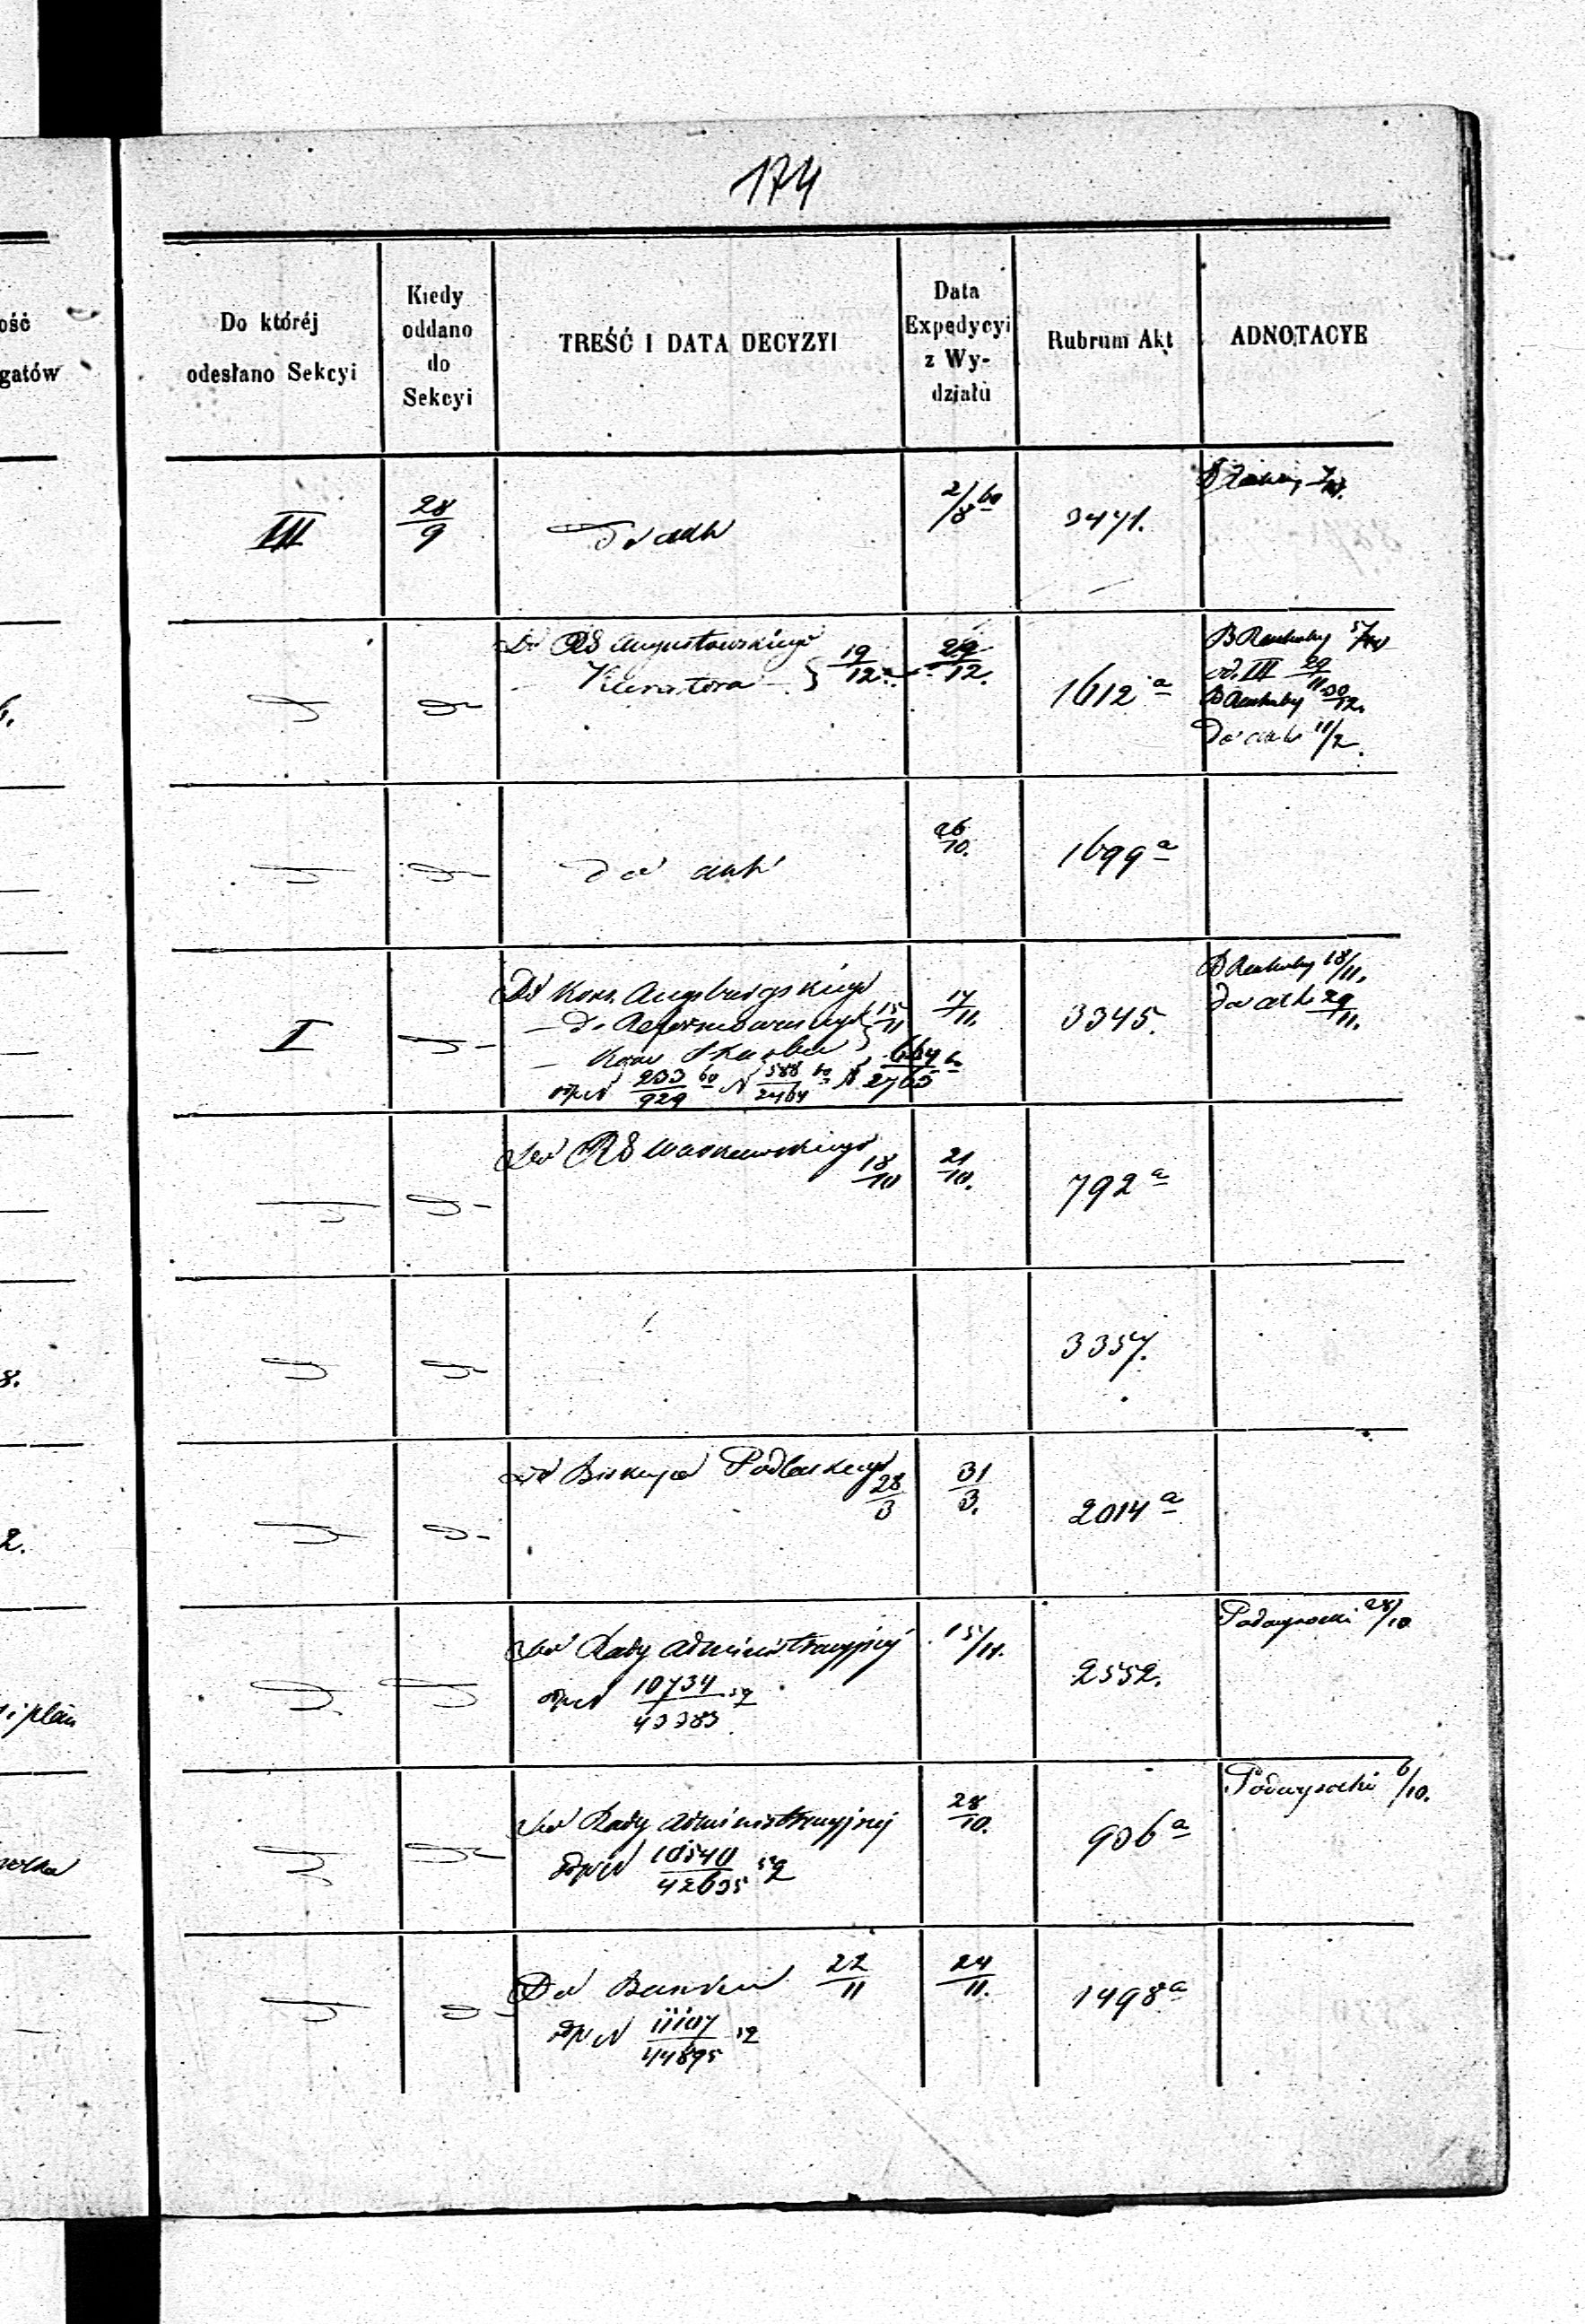 174
ość
gatów
Do któréj
odesłano Sekcyi
Kiedy
oddano
do
Sekcyi
TREŚĆ I DATA DECYZYI
Data
Expedycyi
z Wy-
działu
Rubrum Akt
ADNOTACYE
III
28/9
Do akt
2/8 60
3471.
Do RG Augustowskiego
Kuratora
19/12
29/12.
1612 a
od. III 29/11
30/12.
Do akt 11/2
Do akt
26/10.
1699 a
I
Do Kons. Augsburgskiego
— D. Reformowanych
15/11
— Kom. Skarbu
odp. N 233/929 60 N 588/2464 60 N 664/2765 60
17/11.
3345.
18/11.
Do akt 29/11.
Do RG Warszawskiego
18/10
21/10.
792 a
3357.
8.
Do Biskupa Podlaskiego
28/3
31/3.
2014 a
2.
Do Rady Administracyjnej
odp. N 10734/43383 59
15/11.
2552.
Podwysocki 28/10
i plan
Do Rady Administracyjnej
odp. N 10540/42635 59
28/10.
906 a
Podwysocki 6/10.
Do Banku 22/11
odp. N 11107/44895 59
24/11.
1498 a